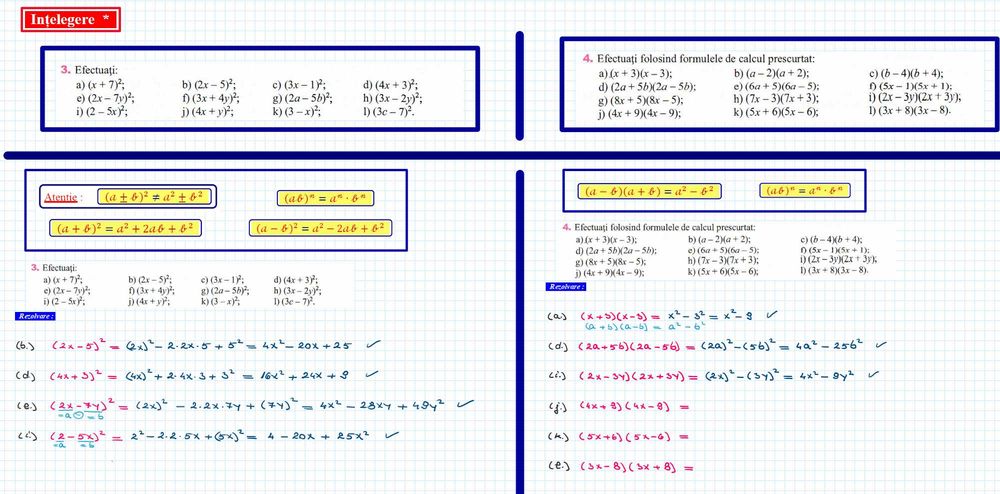 Înțelegere *
3. Efectuați:
a) (x + 7)²; b) (2x – 5)²; c) (3x – 1)²; d) (4x + 3)²;
e) (2x – 7y)²; f) (3x + 4y)²; g) (2a – 5b)²; h) (3x – 2y)²;
i) (2 – 5x)²; j) (4x + y)²; k) (3 – x)²; l) (3c – 7)².
4. Efectuați folosind formulele de calcul prescurtat:
a) (x + 3)(x – 3); b) (a – 2)(a + 2); c) (b – 4)(b + 4);
d) (2a + 5b)(2a – 5b); e) (6a + 5)(6a – 5); f) (5x – 1)(5x + 1);
g) (8x + 5)(8x – 5); h) (7x – 3)(7x + 3); i) (2x – 3y)(2x + 3y);
j) (4x + 9)(4x – 9); k) (5x + 6)(5x – 6); l) (3x + 8)(3x – 8).
Atenție : (a ± b)² ≠ a² ± b² (ab)ⁿ = aⁿ · bⁿ
(a + b)² = a² + 2ab + b² (a – b)² = a² – 2ab + b²
3. Efectuați:
a) (x + 7)²; b) (2x – 5)²; c) (3x – 1)²; d) (4x + 3)²;
e) (2x – 7y)²; f) (3x + 4y)²; g) (2a – 5b)²; h) (3x – 2y)²;
i) (2 – 5x)²; j) (4x + y)²; k) (3 – x)²; l) (3c – 7)².
Rezolvare :
(b.) (2x – 5)² = (2x)² – 2·2x·5 + 5² = 4x² – 20x + 25 ✓
(d) (4x + 3)² = (4x)² + 2·4x·3 + 3² = 16x² + 24x + 9 ✓
(e.) (2x – 7y)² = (2x)² – 2·2x·7y + (7y)² = 4x² – 28xy + 49y² ✓
=a =b
(i.) (2 – 5x)² = 2² – 2·2·5x + (5x)² = 4 – 20x + 25x² ✓
=a =b
(a – b)(a + b) = a² – b² (ab)ⁿ = aⁿ · bⁿ
4. Efectuați folosind formulele de calcul prescurtat:
a) (x + 3)(x – 3); b) (a – 2)(a + 2); c) (b – 4)(b + 4);
d) (2a + 5b)(2a – 5b); e) (6a + 5)(6a – 5); f) (5x – 1)(5x + 1);
g) (8x + 5)(8x – 5); h) (7x – 3)(7x + 3); i) (2x – 3y)(2x + 3y);
j) (4x + 9)(4x – 9); k) (5x + 6)(5x – 6); l) (3x + 8)(3x – 8).
Rezolvare :
(a.) (x + 3)(x – 3) = x² – 3² = x² – 9 ✓
(a + b)(a – b) = a² – b²
(d.) (2a + 5b)(2a – 5b) = (2a)² – (5b)² = 4a² – 25b² ✓
(i.) (2x – 3y)(2x + 3y) = (2x)² – (3y)² = 4x² – 9y² ✓
(j.) (4x + 9)(4x – 9) =
(k.) (5x + 6)(5x – 6) =
(l.) (3x – 8)(3x + 8) =